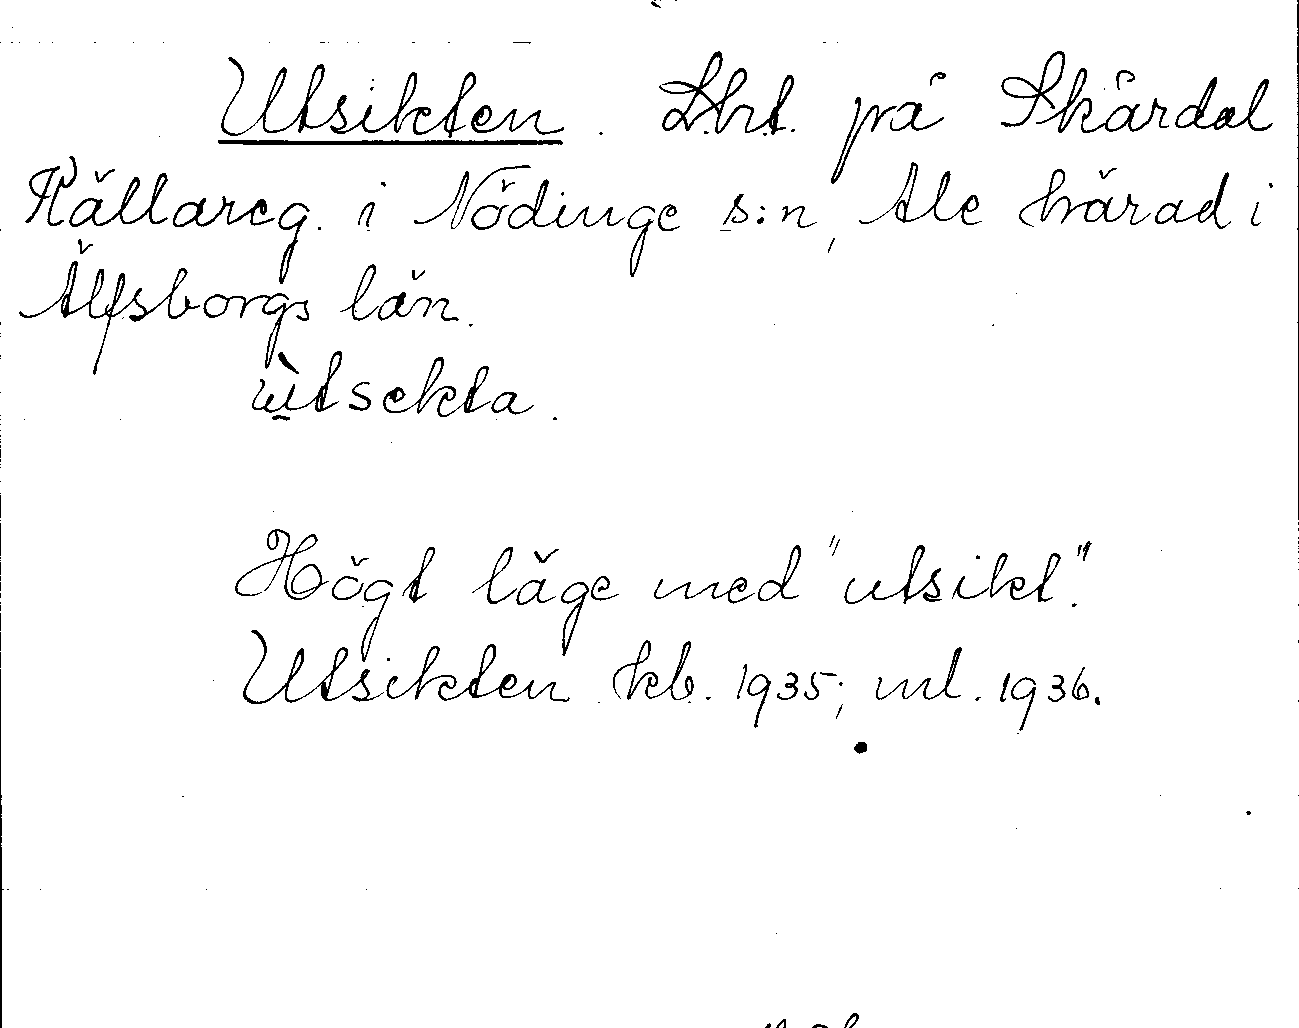 Utsikten. Lht. på Skårdal
Källareg. i Nödinge s:n, Ale härad i
Älfsborgs län.
ùtsekta.
Högt läge med "utsikt".
Utsikten kb. 1935; ml. 1936.